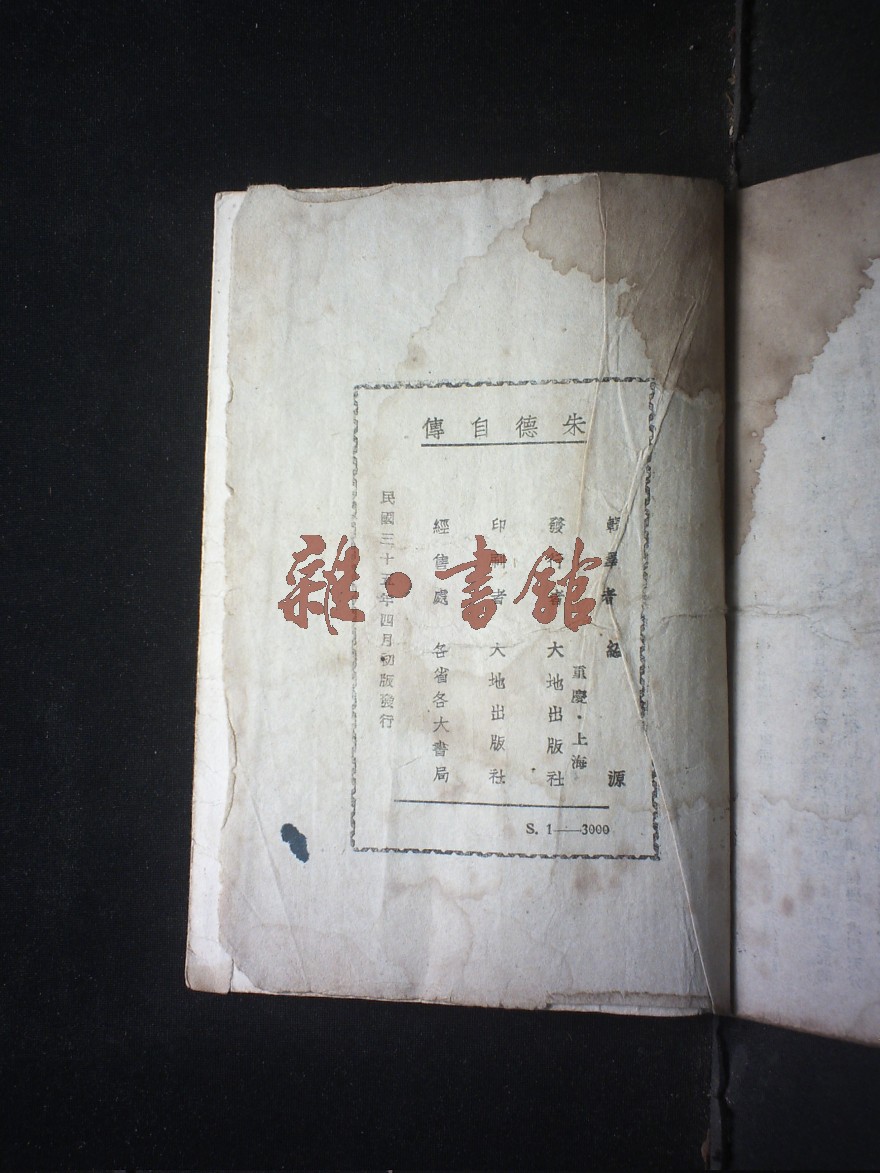 朱德自傳
者
源
重慶·上海
發行者 大地出版社
印刷者 大地出版社
經售處 各省各大書局
民國三十五年四月初版發行
S. 1——3000
雜·書館